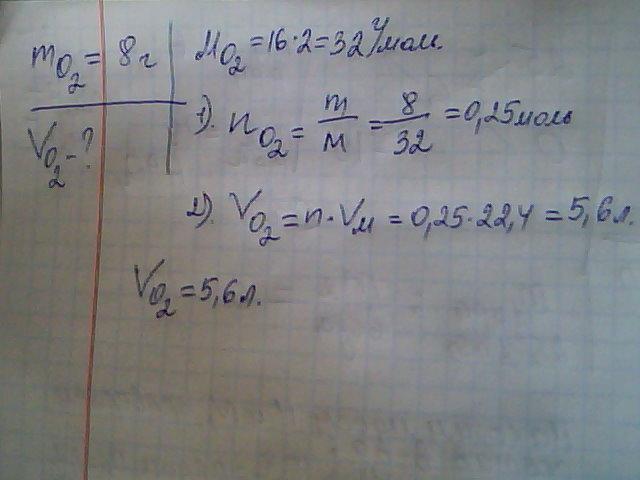 mO₂ = 8 г
VO₂ - ?
MO₂ = 16 · 2 = 32 г/мол.
1). nO₂ = m/M = 8/32 = 0,25 моль
2). VO₂ = n · Vм = 0,25 · 22,4 = 5,6 л.
VO₂ = 5,6 л.